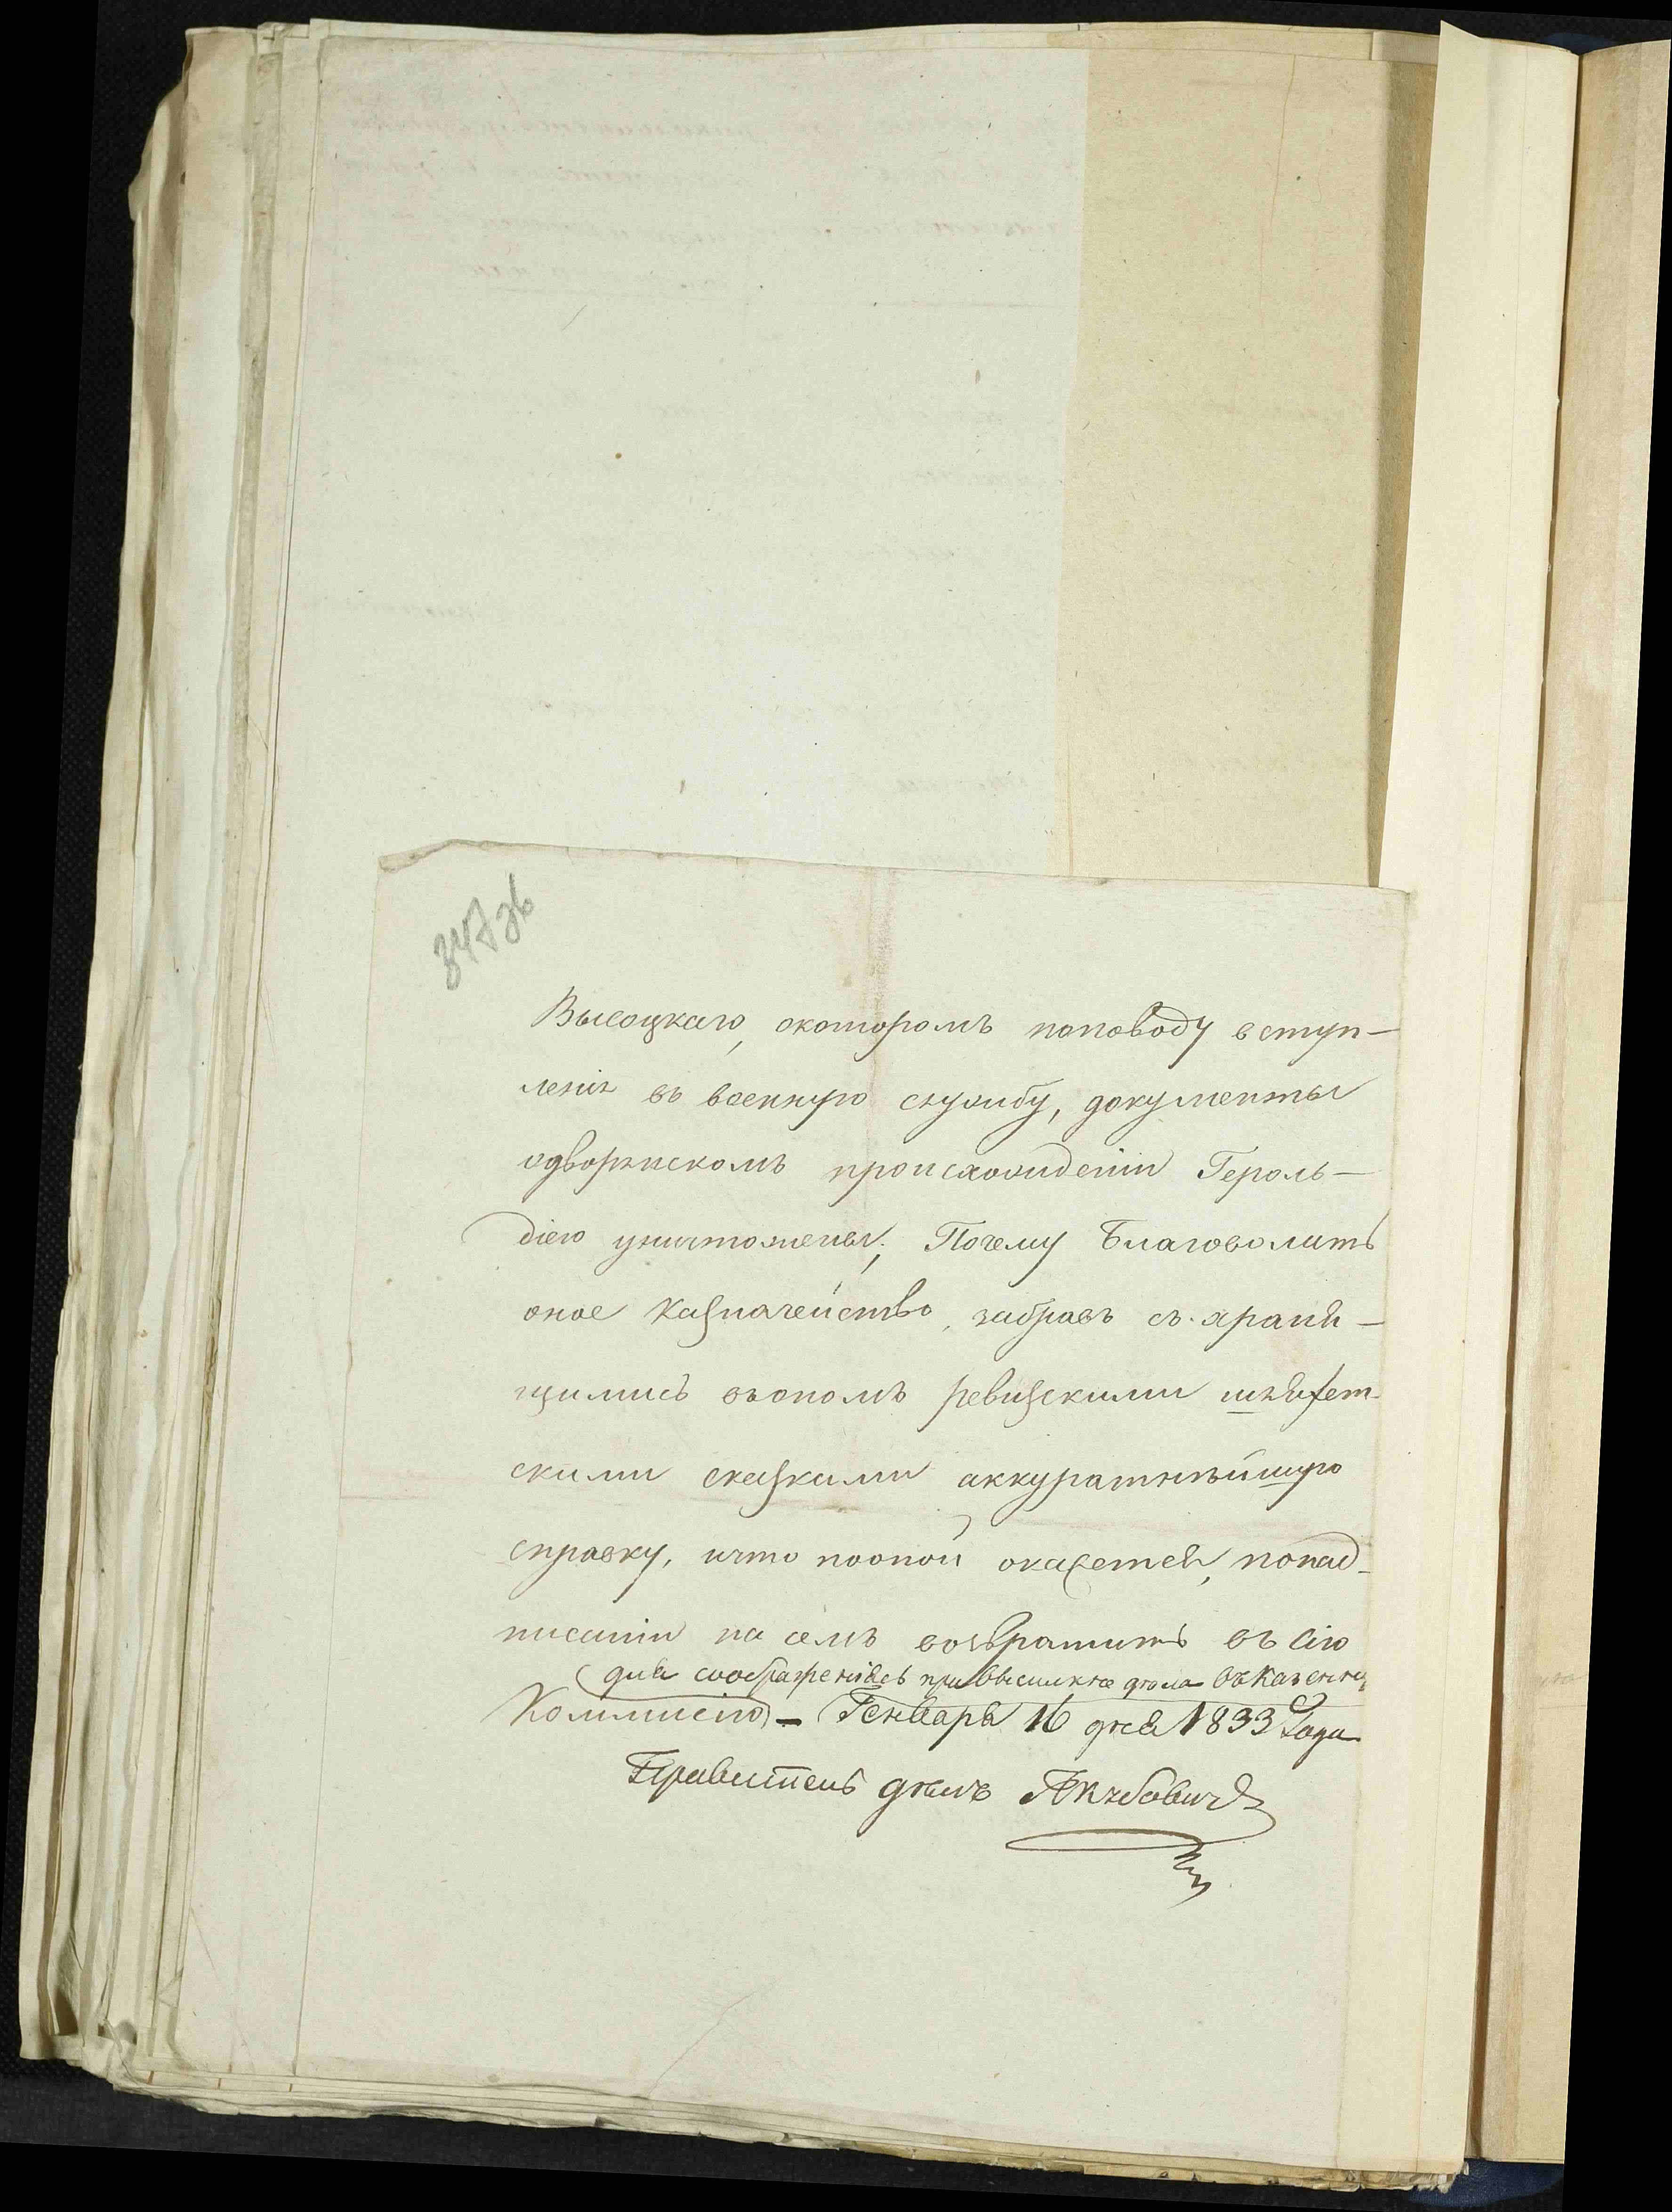 347об
Высоцкаго, окоторомъ поповоду вступ-
ленія въ военную службу, документы
одворянскомъ происхожденіи Героль-
діею уничтожены; Почему Благоволитъ
оное Казначейство, забравъ съ храня-
щимись вономъ ревизскими шляхет-
скими сказками аккуратнѣйшую
справку, ичто поопой окажется, попад-
писаніи на семъ возвратить въ сію
для соображенія при высылке дѣла въ Казенну
Коммисію – Генваря 16 дня 1833 Года
Правитель дѣлъ Якубовичъ